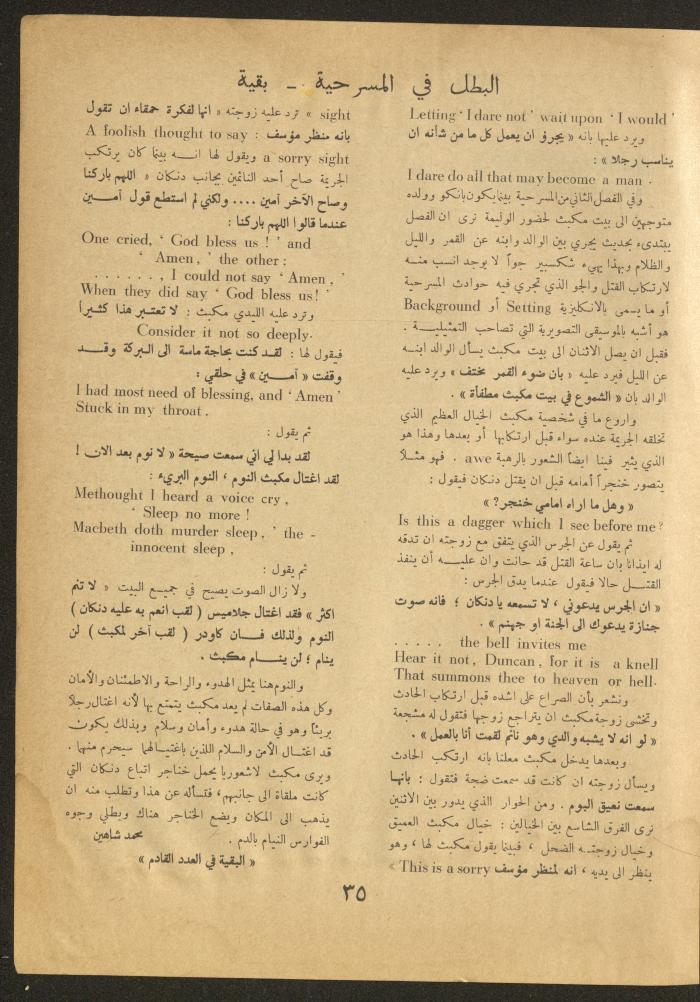 البطل في المسرحية - بقية
Letting ' I dare not ' wait upon ' I would '
ويرد عليها بانه « يجرؤ ان يعمل كل ما من شأنه ان
يناسب رجلا » :
I dare do all that may become a man .
وفي الفصل الثاني من المسرحية بينما يكون بانكو وولده
متوجهين الى بيت مكبث لحضور الوليمة نرى ان الفصل
يبتدىء بحديث يجري بين الوالد وابنه عن القمر والليل
والظلام وبهذا يهيء شكسبير جواً لا يوجد انسب منه
لارتكاب القتل والجو الذي تجري فيه حوادث المسرحية
أو ما يسمى بالانكليزية Setting أو Background
هو أشبه بالموسيقى التصويرية التي تصاحب التمثيلية .
فقبل ان يصل الاثنان الى بيت مكبث يسأل الوالد ابنه
عن الليل فيرد عليه « بان ضوء القمر مختف » ويرد عليه
الوالد بان « الشموع في بيت مكبث مطفأة » .
واروع ما في شخصية مكبث الخيال العظيم الذي
تخلقه الجريمة عنده سواء قبل ارتكابها أو بعدها وهذا هو
الذي يثير فينا ايضاً الشعور بالرهبة awe . فهو مثلاً
يتصور خنجراً أمامه قبل ان يقتل دنكان فيقول :
« وهل ما اراه امامي خنجر؟ »
Is this a dagger which I see before me ?
ثم يقول عن الجرس الذي يتفق مع زوجته ان تدقه
له ايذانا بان ساعة القتل قد حانت وان عليه أن ينفذ
القتل حالا فيقول عندما يدق الجرس :
« ان الجرس يدعوني ، لا تسمعه يا دنكان ؛ فانه صوت
جنازة يدعوك الى الجنة او جهنم » .
. . . . . the bell invites me
Hear it not, Duncan, for it is a knell
That summons thee to heaven or hell.
ونشعر بأن الصراع على اشده قبل ارتكاب الحادث
وتخشى زوجة مكبث ان يتراجع زوجها فتقول له مشجعة
« لو انه لا يشبه والدي وهو نائم لقمت أنا بالعمل » .
وبعدها يدخل مكبث معلنا بانه ارتكب الحادث
ويسأل زوجته ان كانت قد سمعت ضجة فتقول : بانها
سمعت نعيق البوم . ومن الحوار الذي يدور بين الاثنين
نرى الفرق الشاسع بين الخيالين : خيال مكبث العميق
وخيال زوجته الضحل ، فبينما يقول مكبث لها ، وهو
ينظر الى يديه ، أنه لمنظر مؤسف This is a sorry
sight » ترد عليه زوجته « انها لفكرة حمقاء ان تقول
بانه منظر مؤسف : A foolish thought to say
a sorry sight ويقول لها انه بينما كان يرتكب
الجريمة صاح أحد النائمين بجانب دنكان « اللهم باركنا
وصاح الآخر آمين .... ولكني لم استطع قول آمين
عندما قالوا اللهم باركنا :
One cried, ' God bless us ! ' and
' Amen, ' the other :
. . . . . . . , I could not say ' Amen , '
When they did say ' God bless us! '
وترد عليه الليدي مكبث : لا تعتبر هذا كثيراً
Consider it not so deeply.
فيقول لها : لقد كنت بحاجة ماسة الى البركة وقد
وقفت « آمين » في حلقي :
I had most need of blessing, and ' Amen '
Stuck in my throat .
ثم يقول :
لقد بدا لي اني سمعت صيحة « لا نوم بعد الان !
لقد اغتال مكبث النوم ، النوم البريء :
Methought I heard a voice cry ,
' Sleep no more !
Macbeth doth murder sleep , ' the -
innocent sleep ,
ثم يقول :
ولا زال الصوت يصيح في جميع البيت « لا تنم
اكثر » فقد اغتال جلاميس ( لقب انعم به عليه دنكان )
النوم ولذلك فان كاودر ( لقب آخر لمكبث ) لن
ينام ؛ لن ينام مكبث .
والنوم هنا يمثل الهدوء والراحة والاطمئنان والأمان
وكل هذه الصفات لم يعد مكبث يتمتع بها لأنه اغتال رجلاً
بريئاً وهو في حالة هدوء وأمان وسلام وبذلك يكون
قد اغتال الأمن والسلام اللذين باغتيالهما سيحرم منهما .
ويرى مكبث لاشعوريا يحمل خناجر اتباع دنكان التي
كانت ملقاة الى جانبهم ، فتسأله عن هذا وتطلب منه ان
يذهب الى المكان ويضع الخناجر هناك ويطلي وجوه
الفوارس النيام بالدم . محمد شاهين
« البقية في العدد القادم »
٣٥